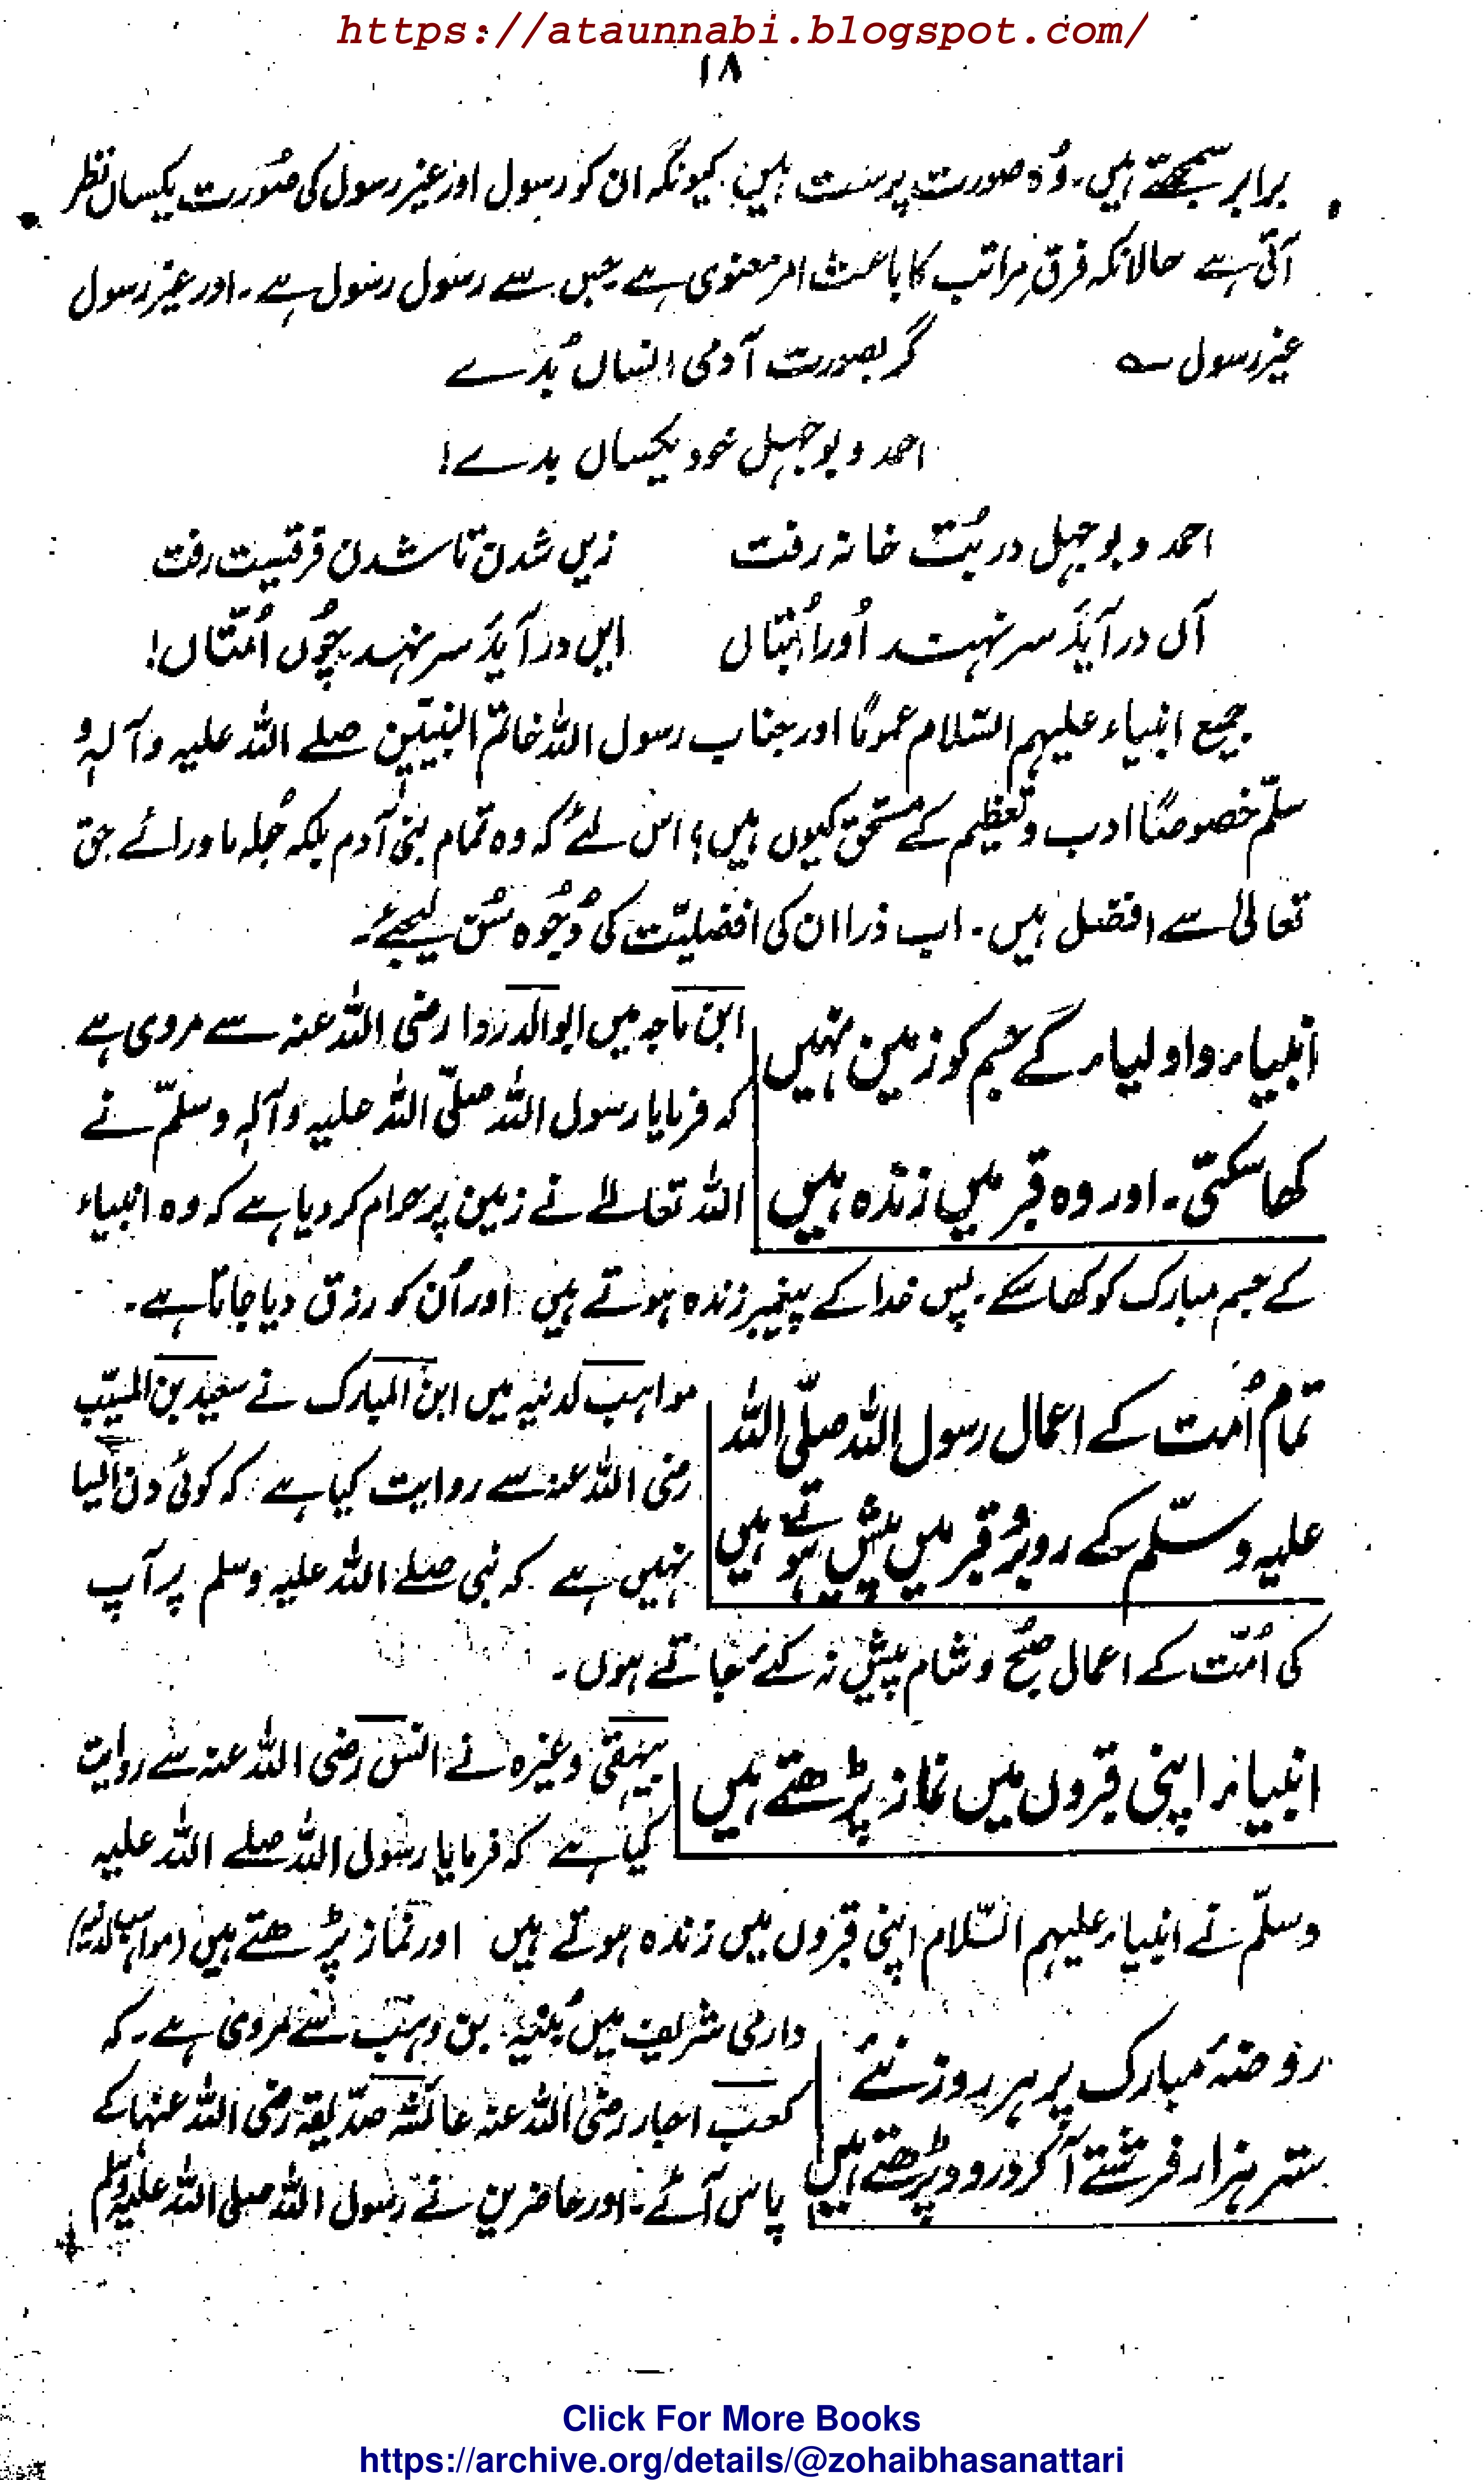 https://ataunnabi.blogspot.com/
۱۸
برابر سمجھتے ہیں۔ وُہ صورت پرست ہیں۔ کیونکہ ان کو رسول اور غیر رسول کی صُورت یکساں نظر
آتی ہے حالانکہ فرقِ مراتب کا باعث امر معنوی ہے جس سے رسول رسول ہے۔ اور غیر رسول
غیر رسول ؎ گر بصورت آدمی انساں بُدے
احمد و بوجہل خود یکساں بدے!
احمد و بوجہل در بُت خانہ رفت زیں شدن تا شدن فرقیست رفت
آں در آید سر نہند اُو را بُتاں ایں در آید سر نہد چوُں اُمتّاں!
جمیع انبیاء علیہم السّلام عموماً اور جناب رسول اللہ خاتم النبیّین صلے اللہ علیہ وآلہٖ و
سلّم خصوصاً ادب و تعظیم کے مستحق کیوں ہیں؟ اس لئے کہ وہ تمام بنی آدم بلکہ جُملہ ماورائے حق
تعالیٰ سے افضل ہیں۔ اب ذرا ان کی افضلیّت کی وُجُوہ سُن لیجئے۔
انبیاء و اولیاء کے جسم کو زمین نہیں
کھا سکتی۔ اور وہ قبر میں زندہ ہیں
ابن ماجہ میں ابوالدردا رضی اللہ عنہ سے مروی ہے
کہ فرمایا رسول اللہ صلّی اللہ علیہ وآلہٖ وسلّم نے
اللہ تعالےٰ نے زمین پر حرام کر دیا ہے کہ وہ انبیاء
کے جسم مبارک کو کھا سکے۔ پس خدا کے پیغمبر زندہ ہوتے ہیں اور اُن کو رزق دیا جاتا ہے۔
تمام اُمت کے اعمال رسول اللہ صلّی اللہ
علیہ وسلّم کے روبرُو قبر میں پیش ہوتے ہیں
مواہب لدنیہ میں ابن المبارک نے سعید بن المسیّب
رضی اللہ عنہ سے روایت کیا ہے کہ کوئی دن ایسا
نہیں ہے کہ نبی صلے اللہ علیہ وسلم پر آپ
کی اُمّت کے اعمال صبُح و شام پیش نہ کئے جاتے ہوں۔
انبیاء اپنی قبروں میں نماز پڑھتے ہیں
بیہقی وغیرہ نے انس رضی اللہ عنہ سے روایت
کیا ہے کہ فرمایا رسول اللہ صلے اللہ علیہ
وسلّم نے انبیاء علیہم السّلام اپنی قبروں میں زندہ ہوتے ہیں اور نماز پڑھتے ہیں (مواہب لدنیہ)
روضۂ مبارک پر ہر روز نئے
ستر ہزار فرشتے آ کر درود پڑھتے ہیں
دارمی شریف میں بن وہب سے مروی ہے۔ کہ
کعب احبار رضی اللہ عنہ عائشہ صدّیقہ رضی اللہ عنہا کے
پاس آئے۔ اور حاضرین نے رسول اللہ صلی اللہ علیہ وسلّم
Click For More Books
https://archive.org/details/@zohaibhasanattari